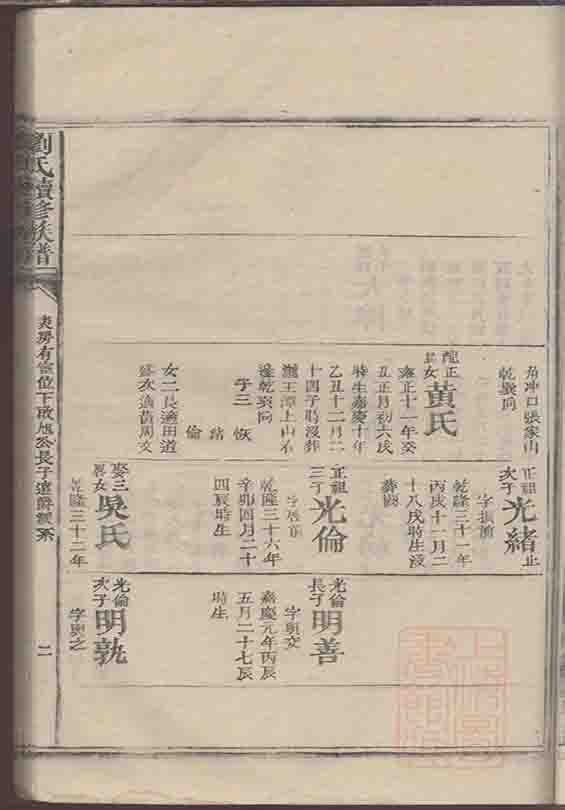 角冲口張家山
乾巽向
配正
女
黃氏
雍正十一年癸
丑正月初六戌
時生嘉慶十年
乙丑十二月二
十四子時沒葬
王潭上山右
乾巽向
子三
恢
緒
倫
女二長適田道
次適黃周文
正祖次子
光緒
止
字
乾隆三十一年
丙戌十一月二
十八戌時生沒
葬
正祖三子
光倫
字
乾隆三十六年
辛卯四月二十
四辰時生
娶三
女
吳氏
乾隆三十二年
光倫長子
明善
字與交
嘉慶元年丙辰
五月二十七辰
時生
光倫次子
明
字與之
劉氏續修族譜
房有位下啟旭公長子遠爵派系
二
上海圖書館藏